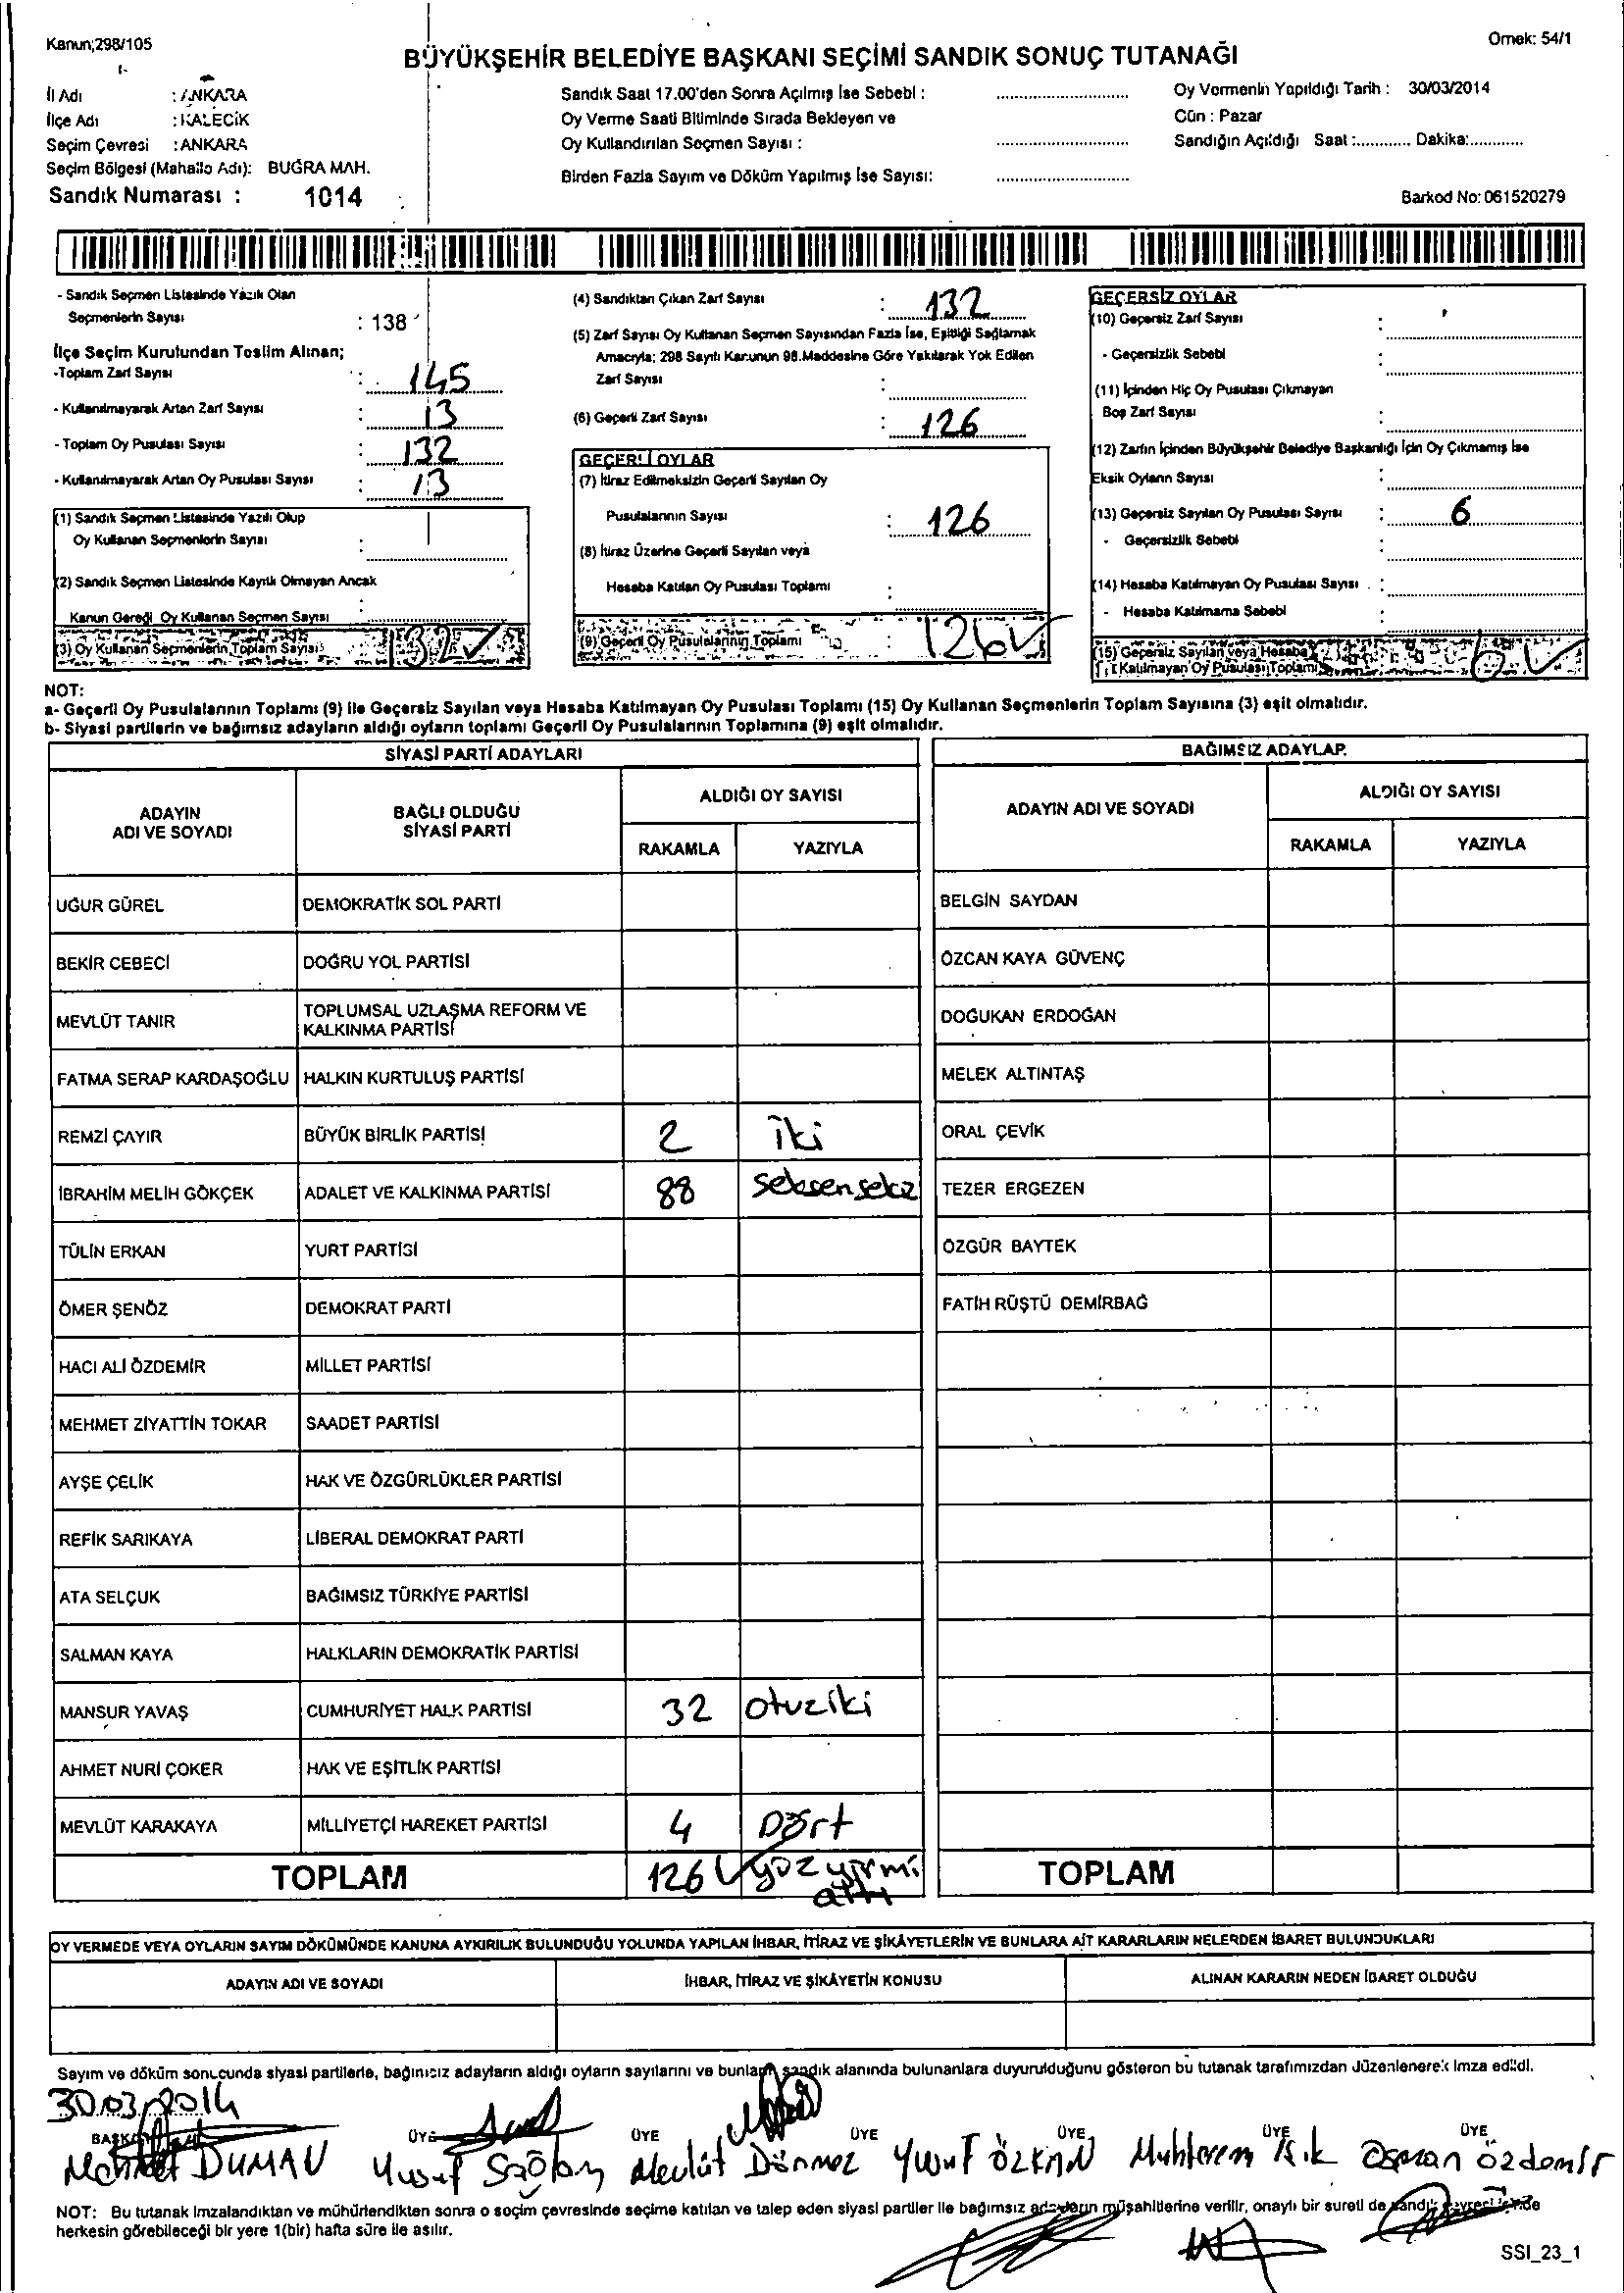 Kanun;298/105
Örnek: 54/1
BÜYÜKŞEHİR BELEDİYE BAŞKANI SEÇİMİ SANDIK SONUÇ TUTANAĞI
İl Adı : ANKARA
İlçe Adı : KALECİK
Seçim Çevresi : ANKARA
Seçim Bölgesi (Mahalle Adı): BUĞRA MAH.
Sandık Numarası : 1014
Sandık Saat 17.00'den Sonra Açılmış İse Sebebi :
Oy Verme Saati Bitiminde Sırada Bekleyen ve
Oy Kullandırılan Seçmen Sayısı :
Birden Fazla Sayım ve Döküm Yapılmış İse Sayısı:
Oy Vermenin Yapıldığı Tarih : 30/03/2014
Gün : Pazar
Sandığın Açıldığı Saat :............ Dakika:............
Barkod No: 061520279
- Sandık Seçmen Listesinde Yazılı Olan
Seçmenlerin Sayısı : 138
İlçe Seçim Kurulundan Teslim Alınan;
-Toplam Zarf Sayısı : 145
- Kullanılmayarak Artan Zarf Sayısı : 13
- Toplam Oy Pusulası Sayısı : 132
- Kullanılmayarak Artan Oy Pusulası Sayısı : 13
(1) Sandık Seçmen Listesinde Yazılı Olup
Oy Kullanan Seçmenlerin Sayısı :
(2) Sandık Seçmen Listesinde Kayıtlı Olmayan Ancak
Kanun Gereği Oy Kullanan Seçmen Sayısı :
(3) Oy Kullanan Seçmenlerin Toplam Sayısı : 132 ✓
(4) Sandıktan Çıkan Zarf Sayısı : 132
(5) Zarf Sayısı Oy Kullanan Seçmen Sayısından Fazla İse, Eşitliği Sağlamak
Amacıyla; 298 Sayılı Kanunun 98.Maddesine Göre Yakılarak Yok Edilen
Zarf Sayısı :
(6) Geçerli Zarf Sayısı : 126
GEÇERLİ OYLAR
(7) İtiraz Edilmeksizin Geçerli Sayılan Oy
Pusulalarının Sayısı : 126
(8) İtiraz Üzerine Geçerli Sayılan veya
Hesaba Katılan Oy Pusulası Toplamı :
(9) Geçerli Oy Pusulalarının Toplamı : 126 ✓
GEÇERSİZ OYLAR
(10) Geçersiz Zarf Sayısı :
- Geçersizlik Sebebi :
(11) İçinden Hiç Oy Pusulası Çıkmayan
Boş Zarf Sayısı :
(12) Zarfın İçinden Büyükşehir Belediye Başkanlığı İçin Oy Çıkmamış İse
Eksik Oyların Sayısı :
(13) Geçersiz Sayılan Oy Pusulası Sayısı : 6
- Geçersizlik Sebebi :
(14) Hesaba Katılmayan Oy Pusulası Sayısı :
- Hesaba Katılmama Sebebi :
(15) Geçersiz Sayılan veya Hesaba
Katılmayan Oy Pusulası Toplamı 6 ✓
NOT:
a- Geçerli Oy Pusulalarının Toplamı (9) ile Geçersiz Sayılan veya Hesaba Katılmayan Oy Pusulası Toplamı (15) Oy Kullanan Seçmenlerin Toplam Sayısına (3) eşit olmalıdır.
b- Siyasi partilerin ve bağımsız adayların aldığı oyların toplamı Geçerli Oy Pusulalarının Toplamına (9) eşit olmalıdır.
SİYASİ PARTİ ADAYLARI
ADAYIN ADI VE SOYADI | BAĞLI OLDUĞU SİYASİ PARTİ | ALDIĞI OY SAYISI
RAKAMLA | YAZIYLA
UĞUR GÜREL | DEMOKRATİK SOL PARTİ
BEKİR CEBECİ | DOĞRU YOL PARTİSİ
MEVLÜT TANIR | TOPLUMSAL UZLAŞMA REFORM VE KALKINMA PARTİSİ
FATMA SERAP KARDAŞOĞLU | HALKIN KURTULUŞ PARTİSİ
REMZİ ÇAYIR | BÜYÜK BİRLİK PARTİSİ | 2 | iki
İBRAHİM MELİH GÖKÇEK | ADALET VE KALKINMA PARTİSİ | 88 | seksensekz
TÜLİN ERKAN | YURT PARTİSİ
ÖMER ŞENÖZ | DEMOKRAT PARTİ
HACI ALİ ÖZDEMİR | MİLLET PARTİSİ
MEHMET ZİYATTİN TOKAR | SAADET PARTİSİ
AYŞE ÇELİK | HAK VE ÖZGÜRLÜKLER PARTİSİ
REFİK SARIKAYA | LİBERAL DEMOKRAT PARTİ
ATA SELÇUK | BAĞIMSIZ TÜRKİYE PARTİSİ
SALMAN KAYA | HALKLARIN DEMOKRATİK PARTİSİ
MANSUR YAVAŞ | CUMHURİYET HALK PARTİSİ | 32 | otuziki
AHMET NURİ ÇOKER | HAK VE EŞİTLİK PARTİSİ
MEVLÜT KARAKAYA | MİLLİYETÇİ HAREKET PARTİSİ | 4 | Dört
TOPLAM | 126 ✓ | yüz yirmi altı
BAĞIMSIZ ADAYLAR
ADAYIN ADI VE SOYADI | ALDIĞI OY SAYISI
RAKAMLA | YAZIYLA
BELGİN SAYDAN
ÖZCAN KAYA GÜVENÇ
DOĞUKAN ERDOĞAN
MELEK ALTINTAŞ
ORAL ÇEVİK
TEZER ERGEZEN
ÖZGÜR BAYTEK
FATİH RÜŞTÜ DEMİRBAĞ
TOPLAM
OY VERMEDE VEYA OYLARIN SAYIM DÖKÜMÜNDE KANUNA AYKIRILIK BULUNDUĞU YOLUNDA YAPILAN İHBAR, İTİRAZ VE ŞİKÂYETLERİN VE BUNLARA AİT KARARLARIN NELERDEN İBARET BULUNDUKLARI
ADAYIN ADI VE SOYADI | İHBAR, İTİRAZ VE ŞİKÂYETİN KONUSU | ALINAN KARARIN NEDEN İBARET OLDUĞU
Sayım ve döküm sonucunda siyasi partilerle, bağımsız adayların aldığı oyların sayılarını ve bunların sandık alanında bulunanlara duyurulduğunu gösteren bu tutanak tarafımızdan düzenlenerek imza edildi.
30.03.2014
BAŞKAN ÜYE ÜYE ÜYE ÜYE ÜYE ÜYE
Mehmet DUMAN Yusuf Sağlam Mevlüt Dönmez Yusuf ÖZKAN Muhterem Işık Osman özdemir
NOT: Bu tutanak imzalandıktan ve mühürlendikten sonra o seçim çevresinde seçime katılan ve talep eden siyasi partiler ile bağımsız adayların müşahitlerine verilir, onaylı bir sureti de sandık çevresinde
herkesin görebileceği bir yere 1(bir) hafta süre ile asılır.
SSI_23_1